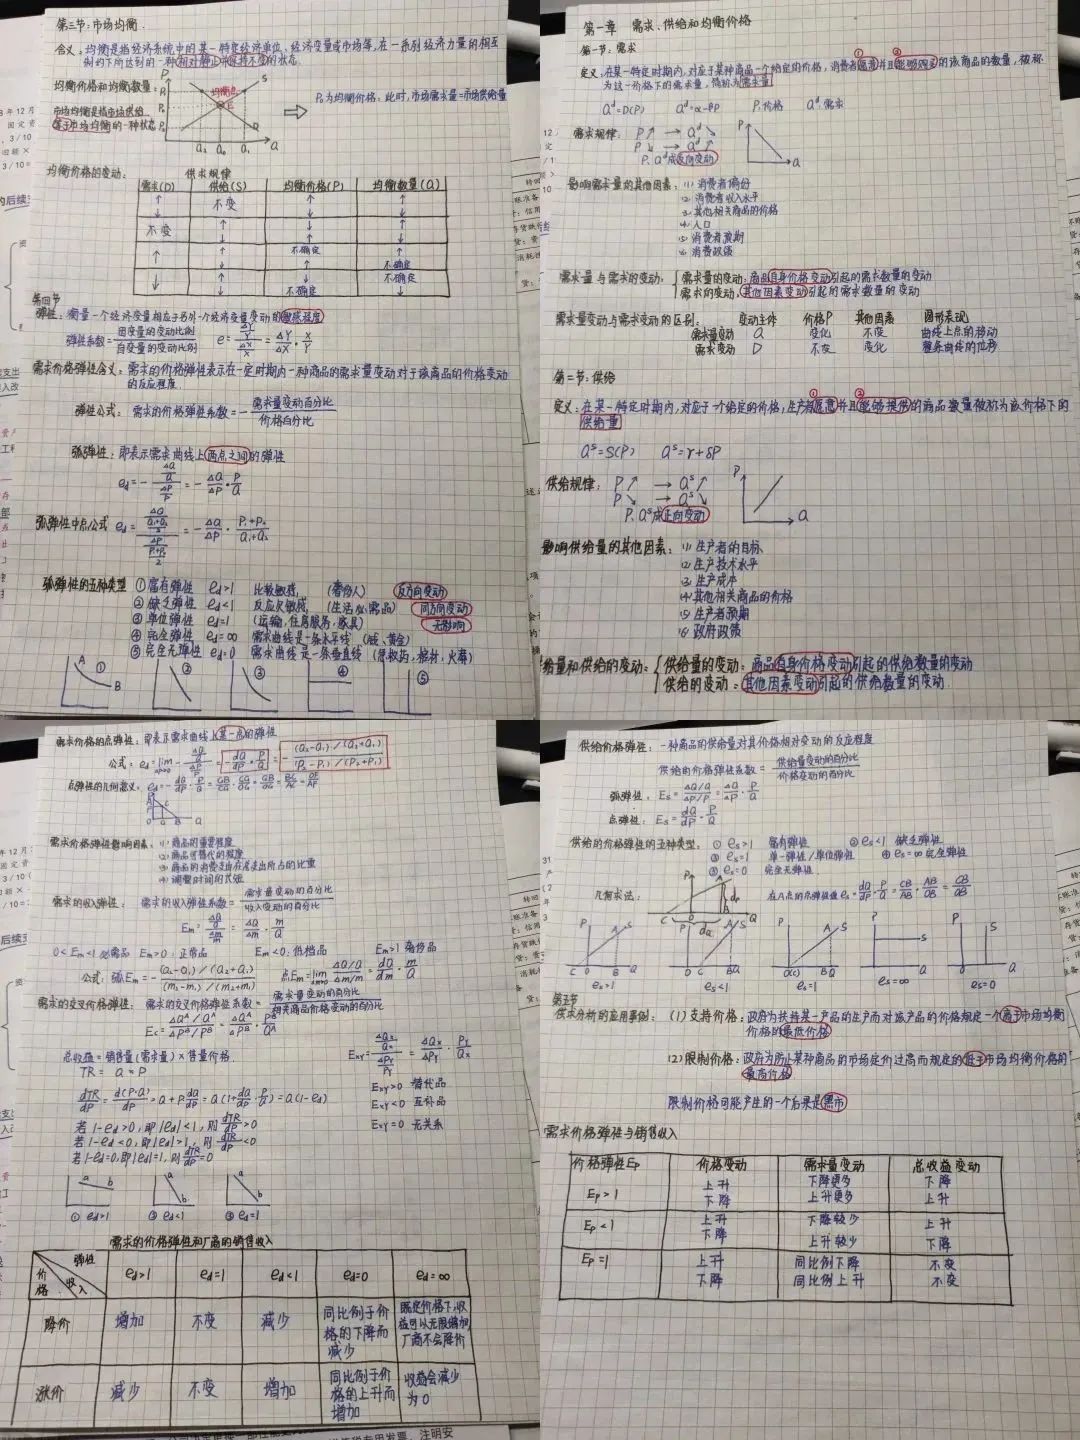 第三节:市场均衡.
含义:均衡是指经济系统中的某一特定经济单位、经济变量或市场等,在一系列经济力量的相互
制约下所达到的一种相对静止并保持不变的状态.
均衡价格和均衡数量:
市场均衡是指市场供给
等于市场均衡的一种状态
均衡点
P
S
E
D
Q
P₀为均衡价格:此时,市场需求量=市场供给量
均衡价格的变动: 供求规律
需求(D) 供给(S) 均衡价格(P) 均衡数量(Q)
↑ 不变 ↑ ↑
↓ ↓ ↓
不变 ↑ ↓ ↑
↓ ↑ ↓
↑ ↑ 不确定 ↑
↓ ↑ 不确定
↓ ↑ ↓ 不确定
↓ 不确定 ↓
第四节
弹性:衡量一个经济变量相应于另外一个经济变量变动的敏感程度
弹性系数=因变量的变动比例/自变量的变动比例 e=(ΔY/Y)/(ΔX/X)=ΔY/ΔX·X/Y
需求价格弹性含义:需求的价格弹性表示在一定时期内一种商品的需求量变动对于该商品的价格变动
的反应程度
弹性公式:需求的价格弹性系数=-需求量变动百分比/价格百分比
弧弹性:即表示需求曲线上两点之间的弹性
ed=-(ΔQ/Q)/(ΔP/P)=-ΔQ/ΔP·P/Q
弧弹性中点公式 ed=-ΔQ/ΔP·(P₁+P₂)/(Q₁+Q₂)
弧弹性的五种类型 ①富有弹性 ed>1 比较敏感, (奢侈人) 反方向变动
②缺乏弹性 ed<1 反应欠敏感, (生活必需品) 同方向变动
③单位弹性 ed=1 (运输,住房服务,家具) 无影响
④完全弹性 ed=∞ 需求曲线是一条水平线
⑤完全无弹性 ed=0 需求曲线是一条垂直线 (急救药,棺材,火葬)
A ① B ② ③ ④ ⑤
第一章 需求、供给和均衡价格
第一节:需求
定义:在某一特定时期内,对应于某种商品一个给定的价格,消费者愿意并且能够购买的该商品的数量,被称
为这一价格下的需求量,简称为需求量
Qᵈ=D(P) Qᵈ=α-βP P.价格 Qᵈ.需求
需求规律: P↗ → Qᵈ↘
P↘ → Qᵈ↗
P.Qᵈ成反向变动
P
Q
影响需求量的其他因素:(1)消费者偏好
(2)消费者收入水平
(3)其他相关商品的价格
(4)人口
(5)消费者预期
(6)消费政策
需求量与需求的变动:需求量的变动:商品自身价格变动引起的需求数量的变动
需求的变动:其他因素变动引起的需求数量的变动
需求量变动与需求变动的区别: 变动主体 价格P 其他因素 图形表现
需求量变动 Q 变化 不变 曲线上点的移动
需求变动 D 不变 变化 整条曲线的位移
第二节:供给
定义:在某一特定时期内,对应于一个给定的价格,生产者愿意并且能够提供的商品数量被称为该价格下的
供给量
Qˢ=S(P) Qˢ=γ+δP
供给规律: P↗ → Qˢ↗
P↘ → Qˢ↘
P.Qˢ成正向变动
P
Q
影响供给量的其他因素:(1)生产者的目标
(2)生产技术水平
(3)生产成本
(4)其他相关商品的价格
(5)生产者预期
(6)政府政策
给量和供给的变动:供给量的变动:商品自身价格变动引起的供给数量的变动
供给的变动:其他因素变动引起的供给数量的变动.
需求价格的点弹性:即表示需求曲线上某一点的弹性
公式:ed=lim-(ΔQ/Q)/(ΔP/P)=-dQ/dP·P/Q=-(Q₂-Q₁)/(Q₂+Q₁)/(P₂-P₁)/(P₂+P₁)
点弹性的几何意义:ed=-dQ/dP·P/Q=GB/CG·CG/OG=GB/OG=BC/AC=OF/AF
需求价格弹性影响因素:(1)商品的重要程度
(2)商品可替代的程度
(3)商品的消费支出在总支出所占的比重
(4)调整时间的长短
需求的收入弹性: 需求的收入弹性系数=需求量变动的百分比/收入变动的百分比
Em=(ΔQ/Q)/(Δm/m)=ΔQ/Δm·m/Q
0<Em<1必需品 Em>0:正常品 Em<0:低档品 Em>1奢侈品
公式:弧Em=(Q₂-Q₁)/(Q₂+Q₁)/(m₂-m₁)/(m₂+m₁) 点Em=lim(ΔQ/Q)/(Δm/m)=dQ/dm·m/Q
需求的交叉价格弹性: 需求的交叉价格弹性系数=需求量变动的百分比/相关商品价格变动的百分比
Ec=(ΔQᴬ/Qᴬ)/(ΔPᴮ/Pᴮ)=ΔQᴬ/ΔPᴮ·Pᴮ/Qᴬ
总收益=销售量(需求量)×售量价格
TR=Q×P
Exy=(ΔQx/Qx)/(ΔPy/Py)=ΔQx/ΔPy·Py/Qx
dTR/dP=d(P·Q)/dP=Q+P·dQ/dP=Q(1+dQ/dP·P/Q)=Q(1-ed)
Exy>0 替代品
Exy<0 互补品
Exy=0 无关系
若1-ed>0,即|ed|<1,则dTR/dP>0
若1-ed<0,即|ed|>1,则dTR/dP<0
若1-ed=0,即|ed|=1,则dTR/dP=0
a b a b a b
①ed>1 ②ed<1 ③ed=1
需求的价格弹性和厂商的销售收入
弹性 价格 收入 ed>1 ed=1 ed<1 ed=0 ed=∞
降价 增加 不变 减少 同比例于价格的下降而减少 既定价格下,收益可以无限增加,厂商不会降价
涨价 减少 不变 增加 同比例于价格的上升而增加 收益会减少为0
供给价格弹性:一种商品的供给量对其价格相对变动的反应程度
供给的价格弹性系数=供给量变动的百分比/价格变动的百分比
弧弹性:Es=(ΔQ/Q)/(ΔP/P)=ΔQ/ΔP·P/Q
点弹性:Es=dQ/dP·P/Q
供给的价格弹性的五种类型:①es>1 富有弹性 ②es<1 缺乏弹性
③es=1 单一弹性/单位弹性 ④es=∞完全弹性
⑤es=0 完全无弹性
几何求法:
在A点的点弹性值es=dQ/dP·P/Q=CB/AB·AB/OB=CB/OB
es>1 es<1 es=1 es=∞ es=0
第五节
供求分析的应用事例:(1)支持价格:政府为扶持某一产品的生产而对该产品的价格规定一个高于市场均衡
价格的最低价格
(2)限制价格:政府为防止某种商品的市场定价过高而规定的低于市场均衡价格的
最高价格
限制价格可能产生的一个后果是黑市
需求价格弹性与销售收入
价格弹性Ep 价格变动 需求量变动 总收益变动
Ep>1 上升 下降更多 下降
下降 上升更多 上升
Ep<1 上升 下降较少 上升
下降 上升较少 下降
Ep=1 上升 同比例下降 不变
下降 同比例上升 不变